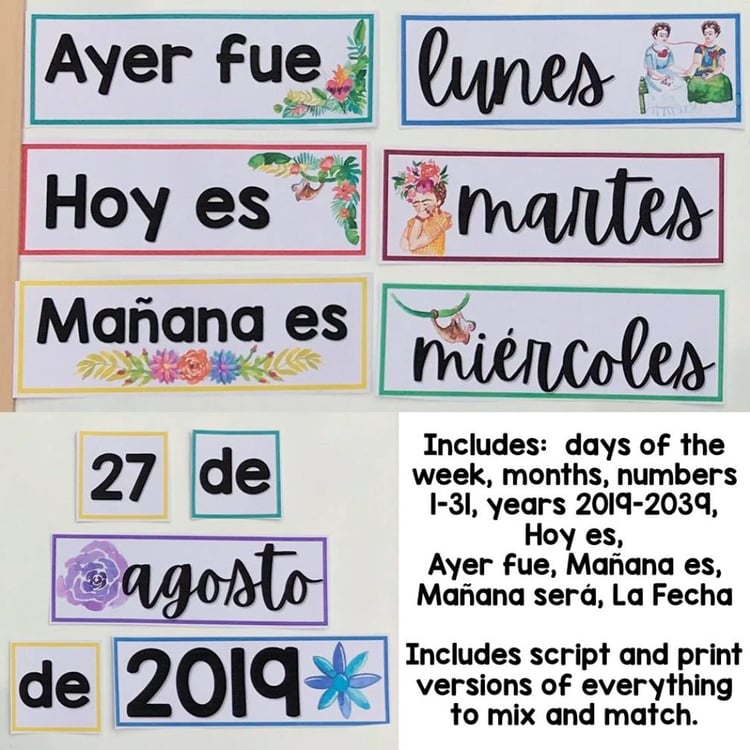 Ayer fue lunes
Hoy es martes
Mañana es miércoles
27 de
agosto
de 2019
Includes: days of the
week, months, numbers
1-31, years 2019-2039,
Hoy es,
Ayer fue, Mañana es,
Mañana será, La Fecha
Includes script and print
versions of everything
to mix and match.